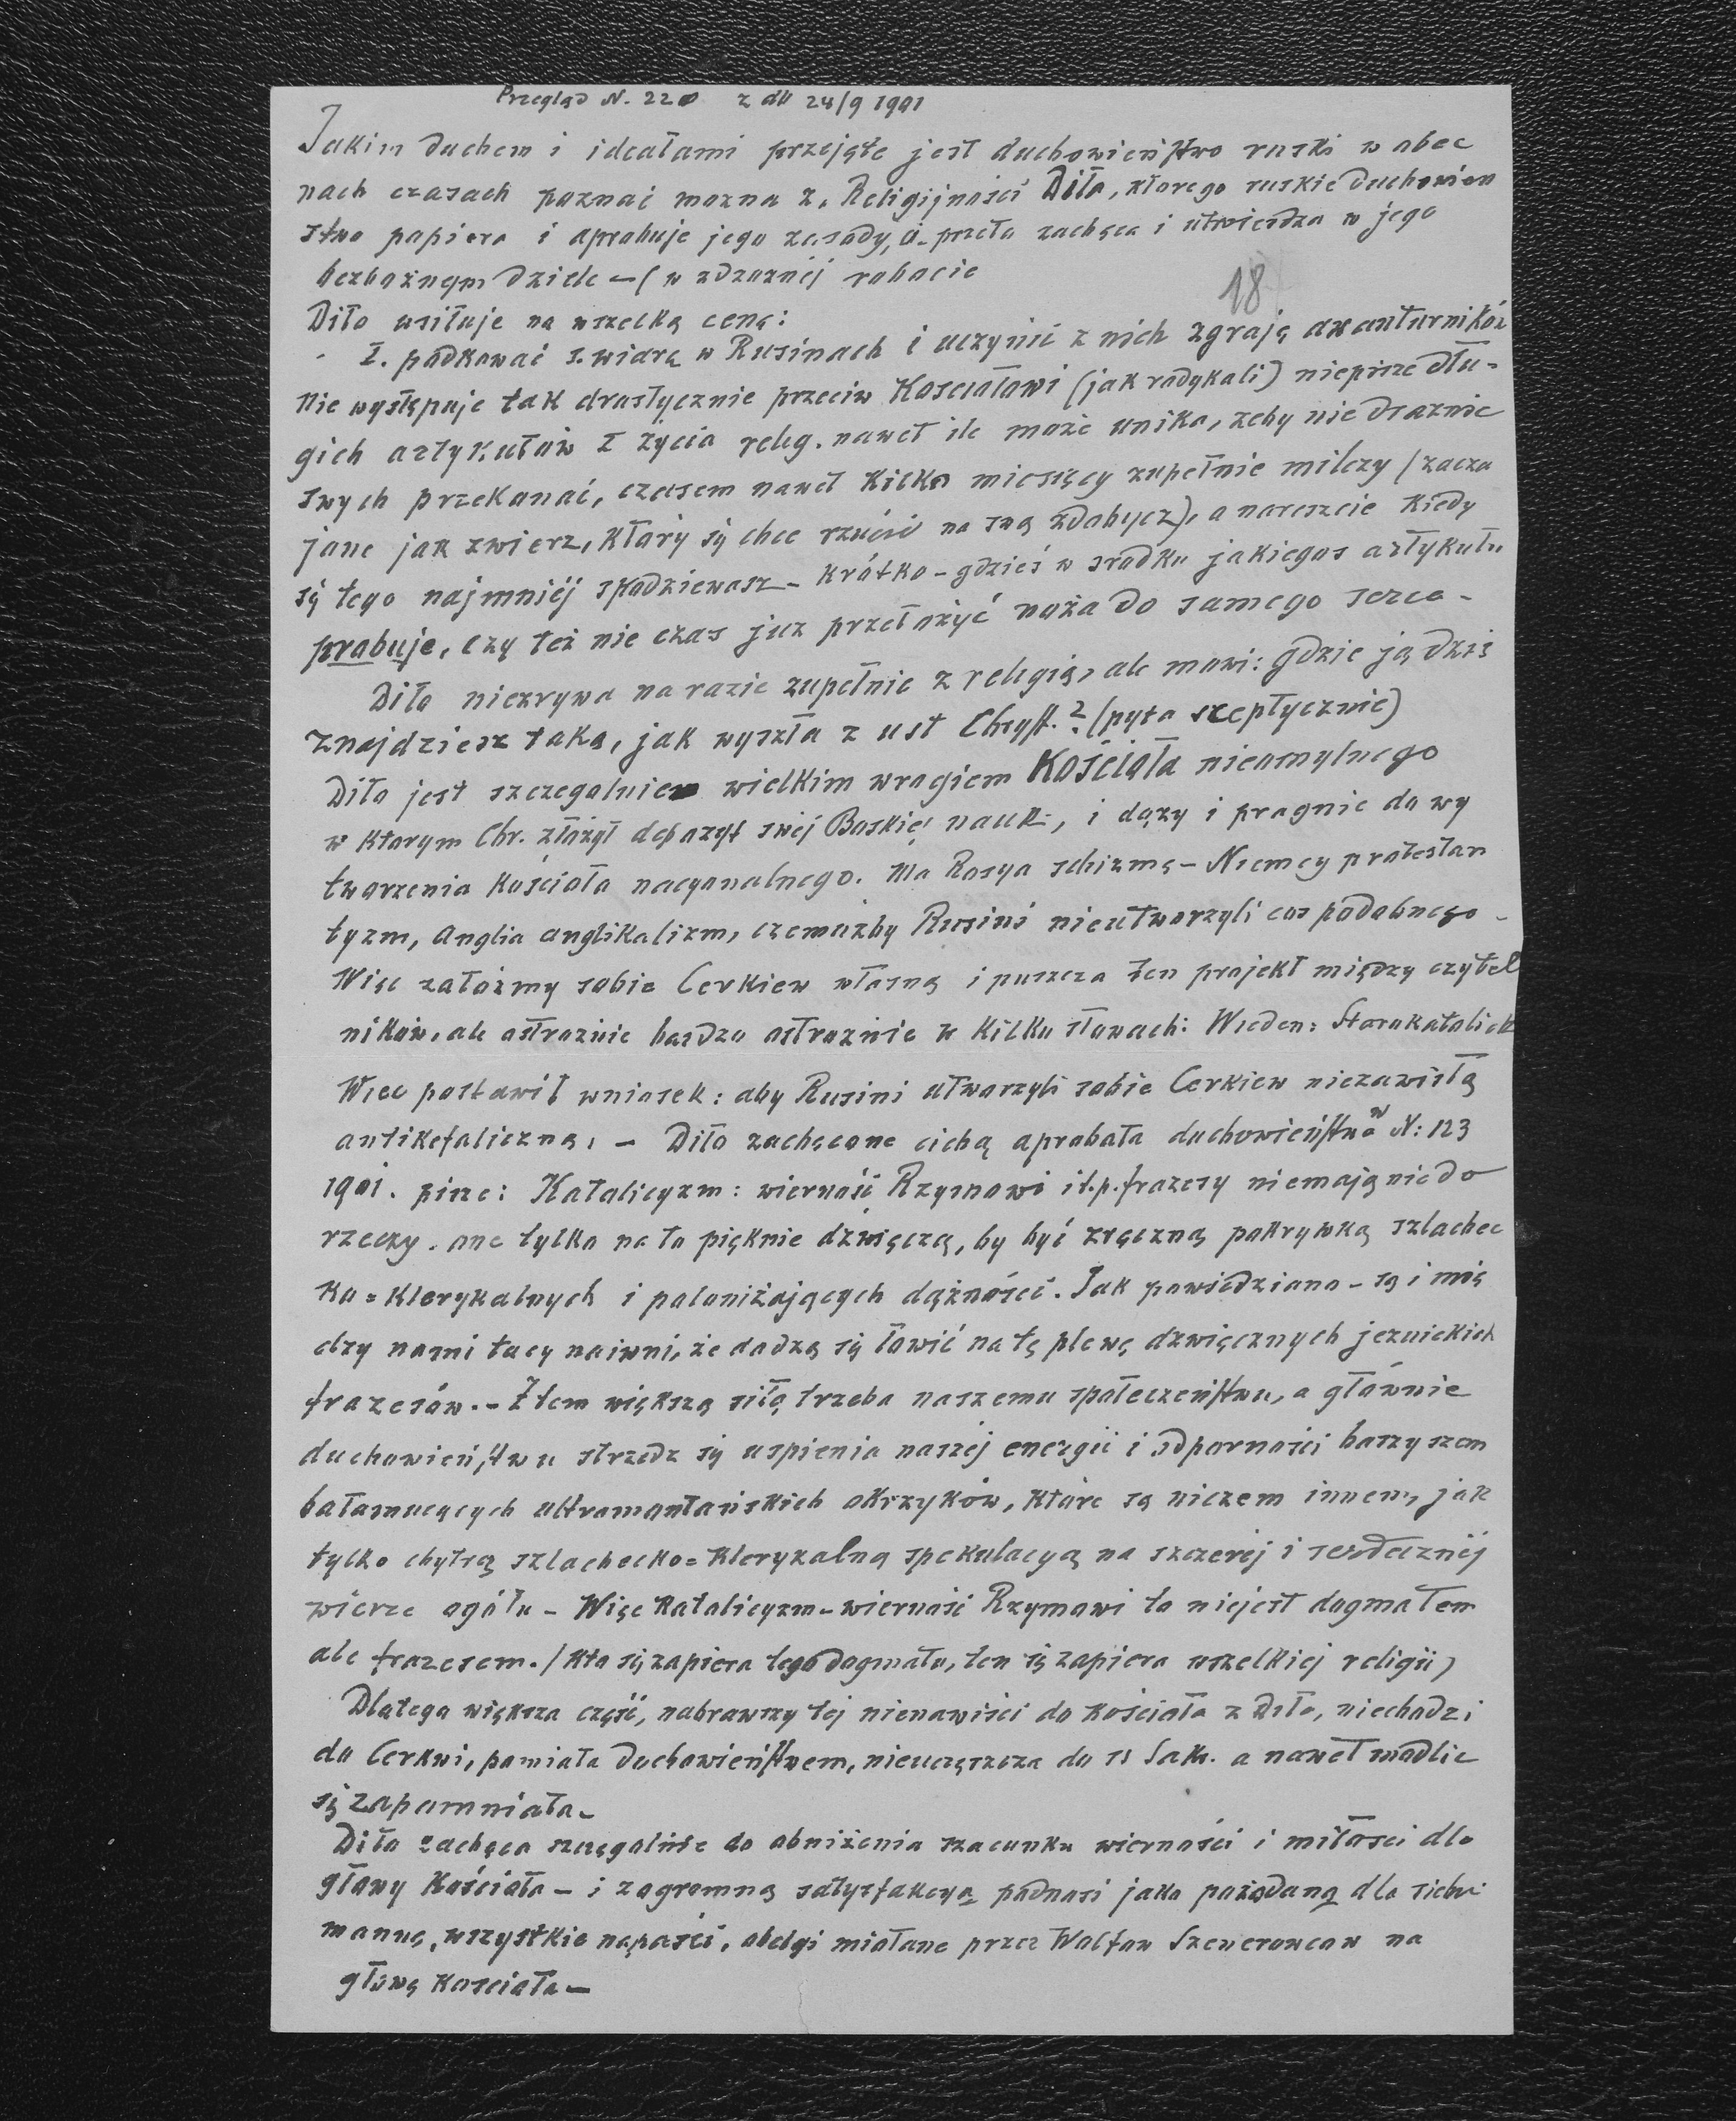 Przegląd N. 220 z dn 24/9 1901
Jakim duchem i ideałami przejęte jest duchowieństwo ruski w obec
nach czasach poznać mozna z. Religijności Diła, ktorego ruskie duchowien
stwo papiera i aprobuje jego zasady, a przeto zachęca i utwierdza w jego
bezbożnym dziele – (w zdrożnéj robocie
18
Diło usiłuje na wszelką cenę:
I. podkować s. wiarę w Rusinach i uczynić z nich zgraję awanturników
nie występuje tak drastycznie przeciw Kosciołowi (jak radykali) niepisze dłu-
gich artykułów z życia relig. nawet ile może unika, zeby nie drażnic
swych przekonać, czasem nawet kilka miesięcy zupełnie milczy (zacza
jone jak zwierz, który są chce rzucić na swą zdobycz), a nareszcie kiedy
są tego najmniéj spodziewasz – krótko – gdzieś w srodku jakiegos artykułu
probuje, czy też nie czas juz przełożyć noża do samego serca –
Diło niezrywa na razie zupełnie z religią, ale mowi: gdzie ją dziś
znajdziesz taką, jak wyszła z ust Chryst.? (pyta sceptycznie)
Diło jest szczegolnie wielkim wrogiem Kościoła nieomylnego
w ktorym Chr. złożył depozyt swéj Boskiéj nauk, i dązy i pragnie do wy
tworzenia Kościoła nacyonalnego. Ma Rosya schizmę – Niemcy protestan
tyzm, Anglia anglikalizm, czemużby Rusini nieutworzyli cos podobnego –
Więc załóżmy sobie Cerkiew własną i puszcza ten projekt między czytel
ników, ale ostrożnie bardzo ostrożnie w kilku słowach: Wieden: Starokatolick
Wiec postawił wniosek: aby Rusini utworzyli sobie Cerkiew niezawisłą
antikefaliczną, – Diło zachęcone cichą aprobatą duchowieństwa w N: 123
1901. pisze: Katolicyzm: wierność Rzymowi it.p. frazesy niemają nic do
rzeczy. one tylko na to pięknie dźwięczą, by być zręczną pokrywką szlachec
ko = klerykalnych i polonizających dążności. Jak powiedziano – są i mię
dzy nami tacy naiwni, że dadzą są łowić na tę plewę dzwięcznych jezuickich
frazesów. – Z tem większą siłą trzeba naszemu społeczeństwu, a głównie
duchowieństwu strzedz są uspienia naszéj energii i odporności haszyszem
bałamucących ultramontańskich okrzyków, które są niczem innem, jak
tylko chytrą szlachecko = klerykalną spekulacyą na szczeréj i serdecznéj
wierze ogółu – Więc Katolicyzm – wierność Rzymowi to niejest dogmatem
ale frazesem. / Kto są zapiera tego dogmatu, ten są zapiera wszelkiej religii)
Dlatego większa część, nabrawszy téj nienawiści do kościoła z Diła, niechodzi
do Cerkwi, pomiata duchowieństwem, nieuczęszcza do ss Sakr. a nawet modlic
są zapomniała –
Diło zachęca szczególnie do obniżenia szacunku wierności i miłosci dla
głowy Kościoła – i zogromną satysfakcyą podnosi jako pożądaną dla siebie
mannę, wszystkie napaści, obelgi miotane przez Wolfow Szenerowcow na
głowę kosciola –